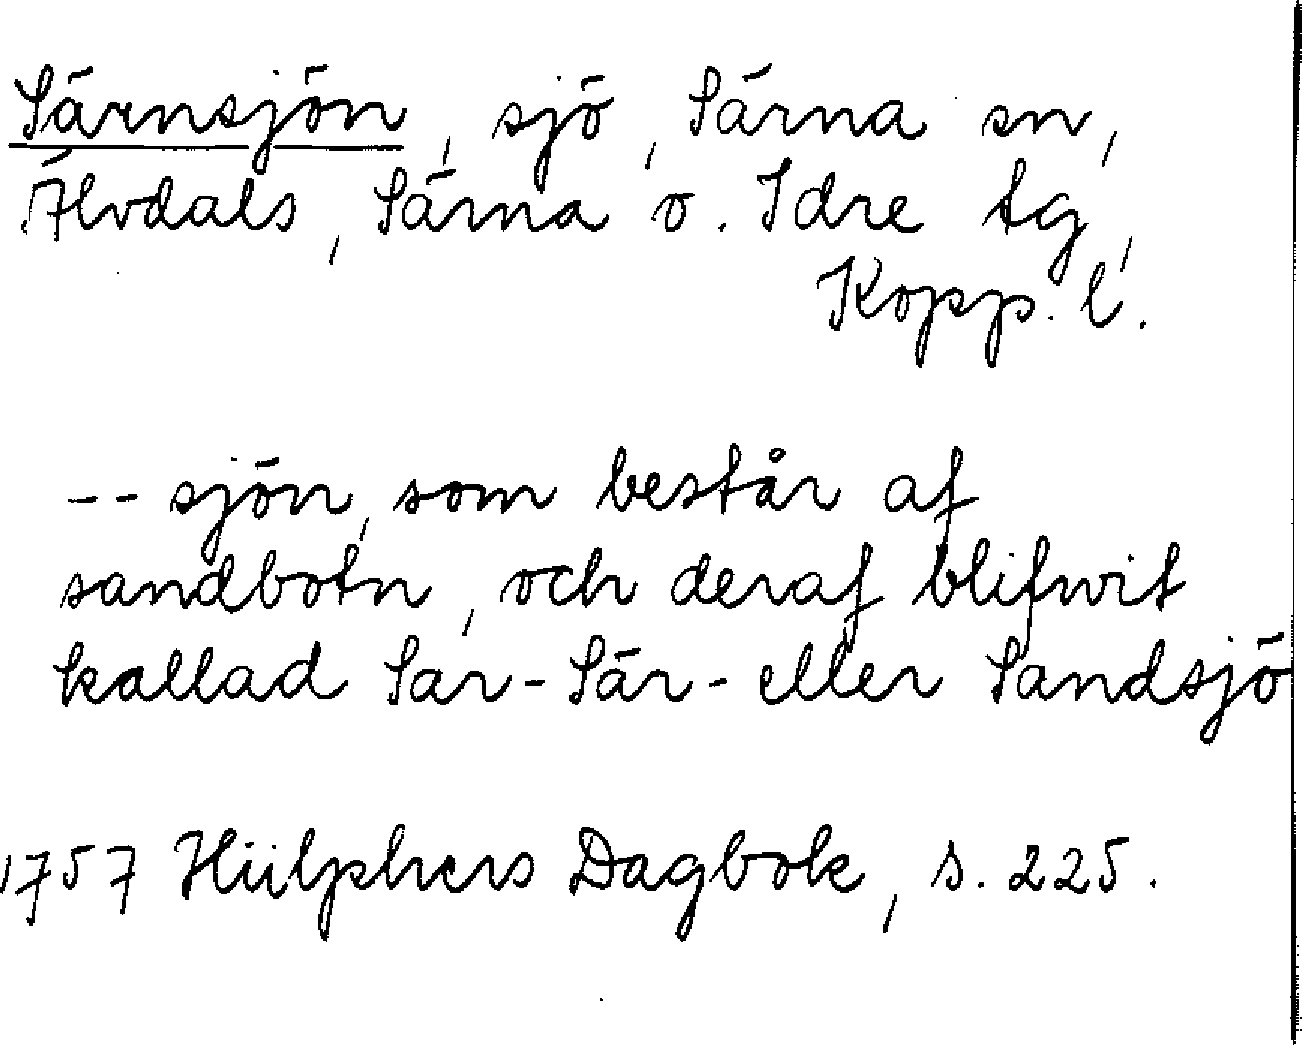 Särnsjön, sjö, Särna sn,
Älvdals, Särna o. Idre tg,
Kopp. l.
-- sjön, som består af
sandbotn, och deraf blifwit
kallad Sar- Sär- eller Sandsjö
1757 Hülphers Dagbok, s. 225.